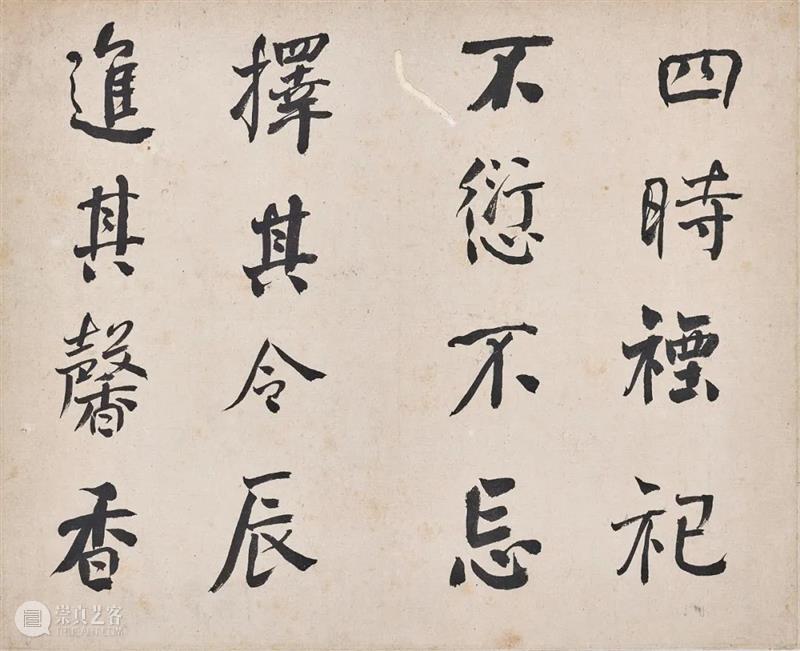 四時禋祀
不愆不忘
擇其令辰
進其馨香
崇真艺客
TRUEART.COM